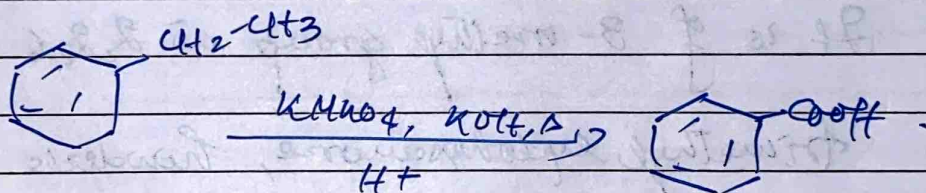 CH2-CH3
KMnO4, KOH, Δ,
COOH
H+